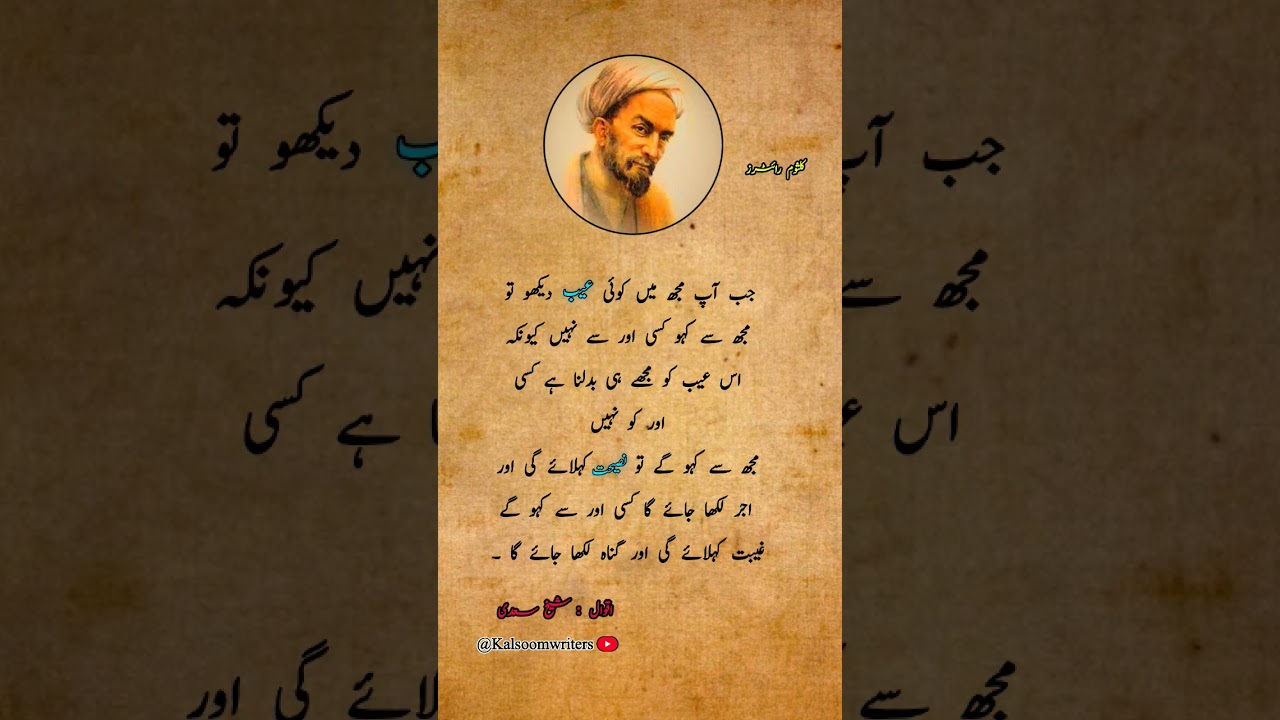 کلثوم رائٹرز
جب آپ مجھ میں کوئی عیب دیکھو تو
مجھ سے کہو کسی اور سے نہیں کیونکہ
اس عیب کو مجھے ہی بدلنا ہے کسی
اور کو نہیں
مجھ سے کہو گے تو نصیحت کہلائے گی اور
اجر لکھا جائے گا کسی اور سے کہو گے
غیبت کہلائے گی اور گناہ لکھا جائے گا ۔
اقوال : شیخ سعدی
@Kalsoomwriters